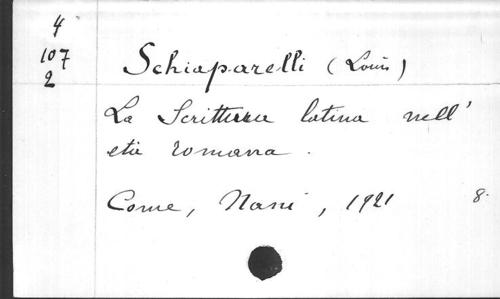 4
107
2
Schiaparelli (Louis)
La Scrittura latina nell'
età romana.
Come, Nani, 1921 8.